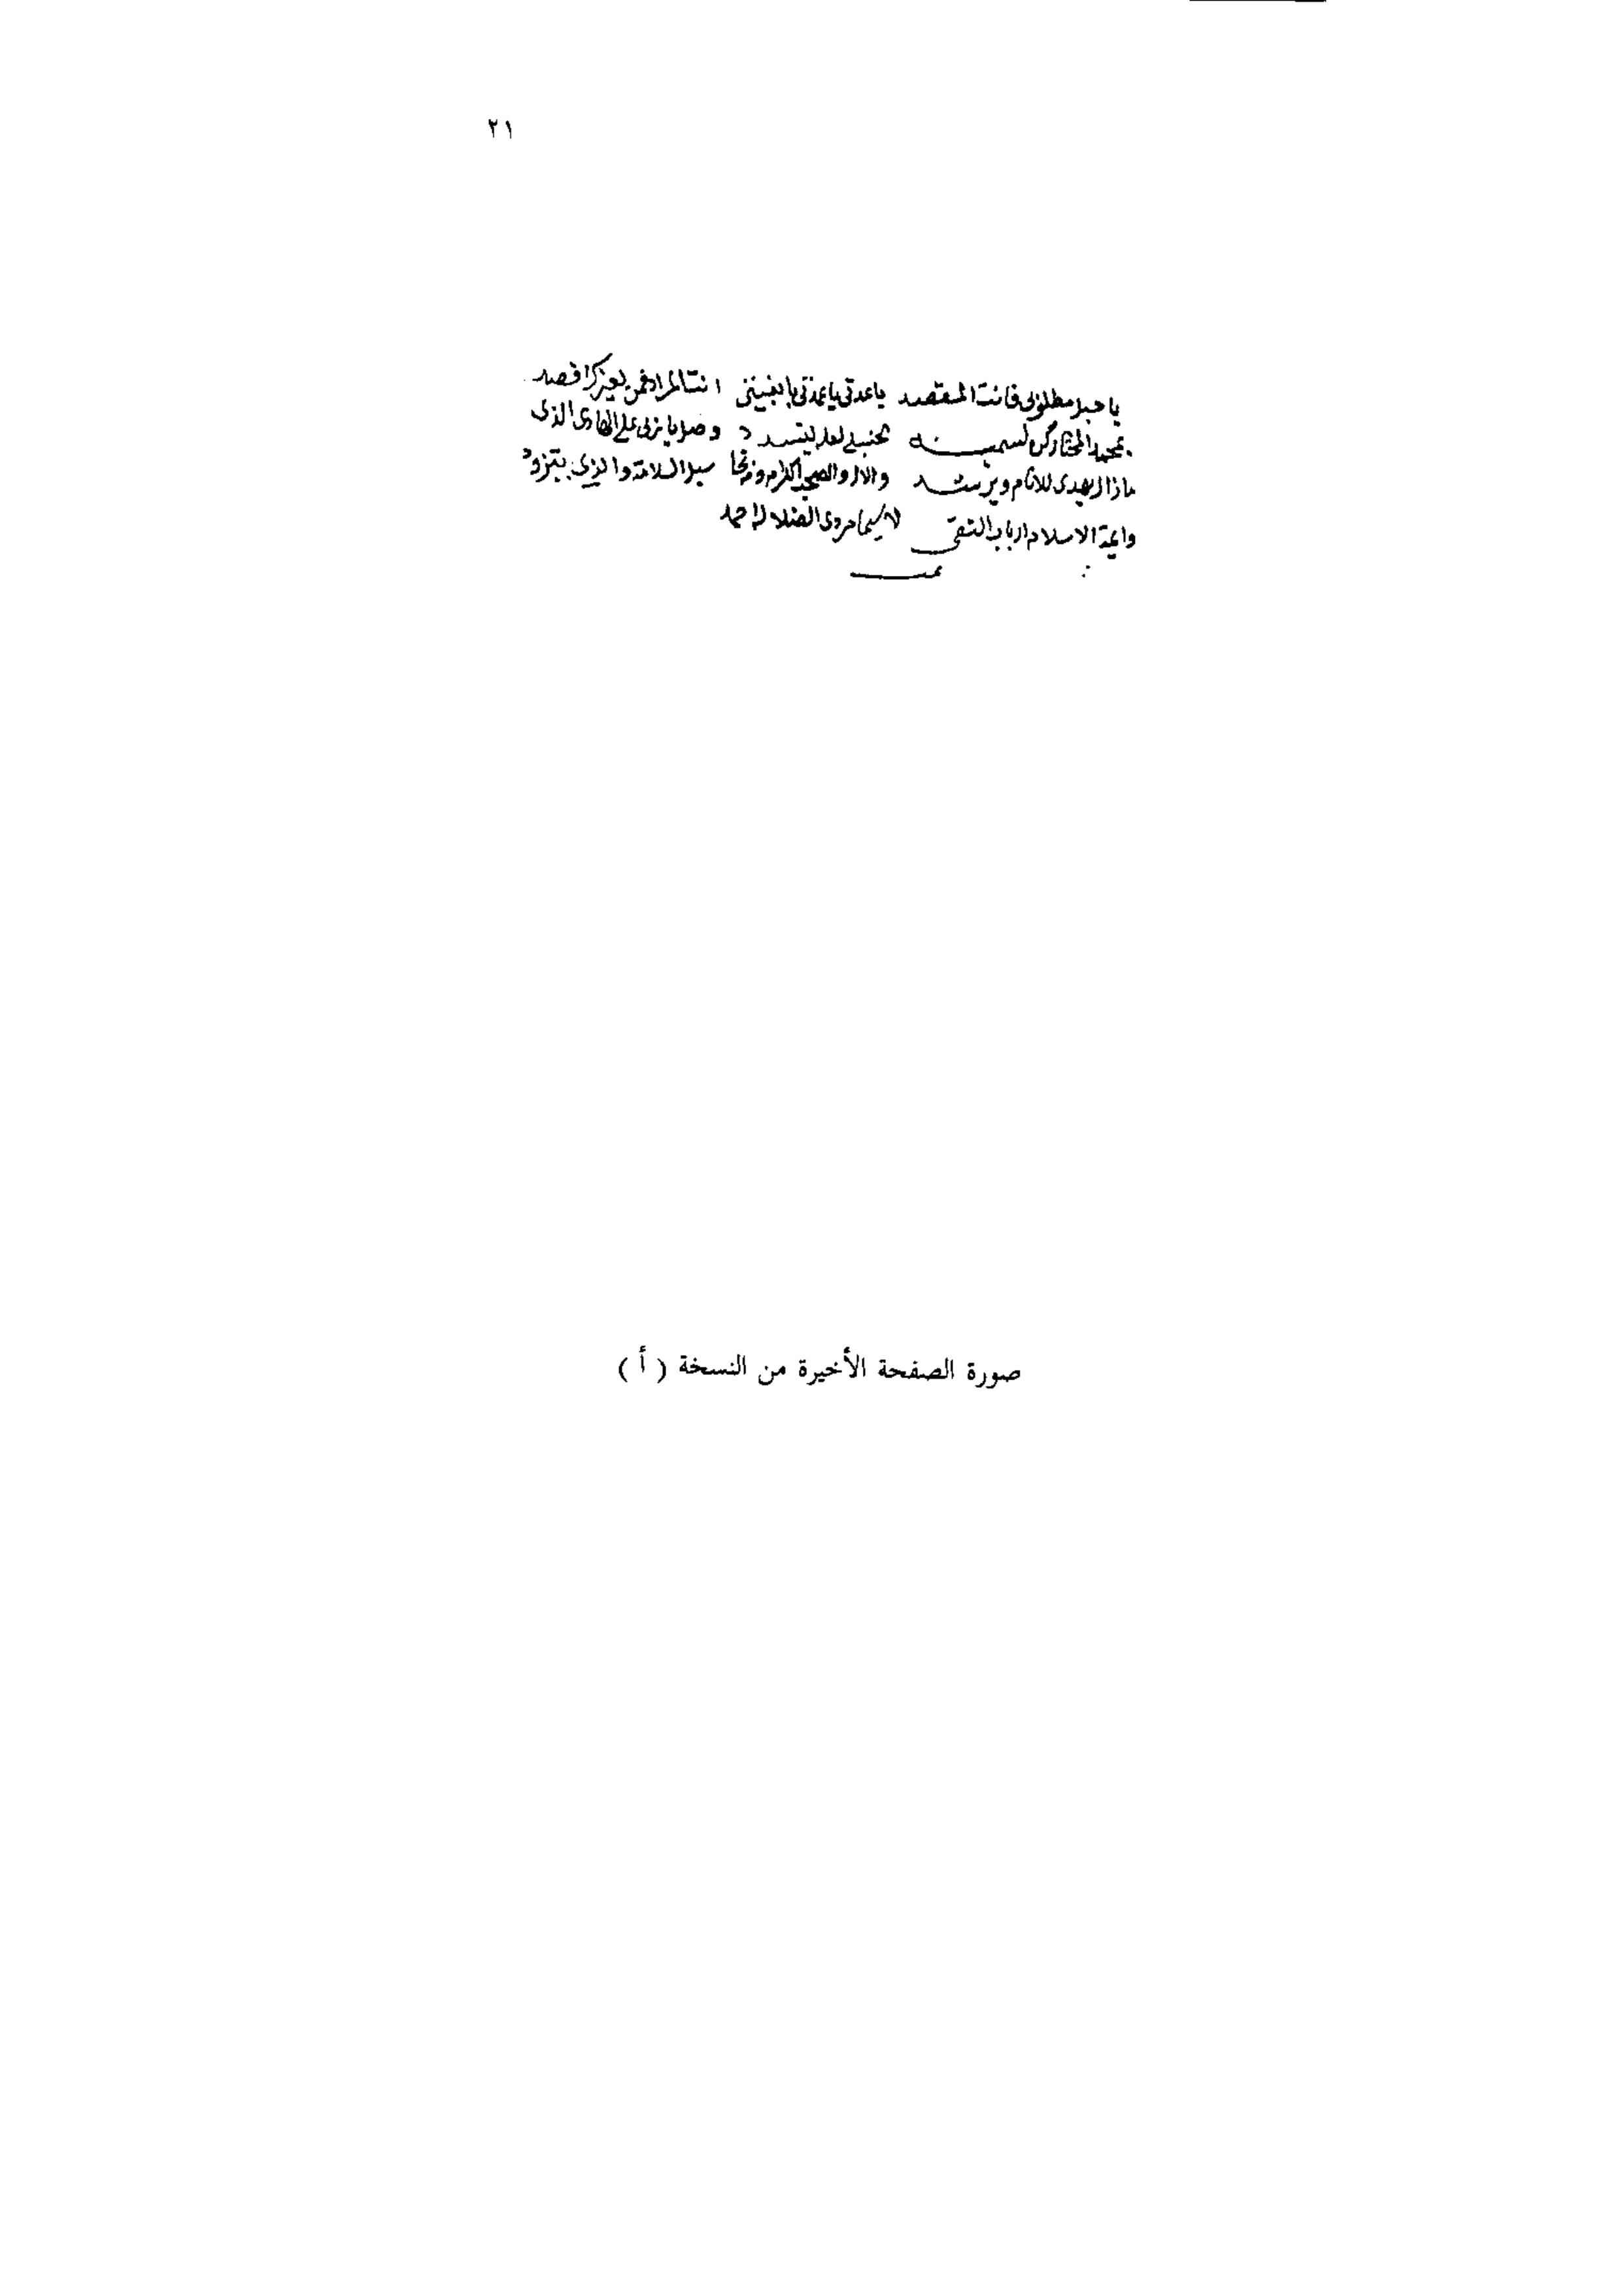 ٢١
يا حبل مطلوبى فانت المقصد يا عدتى يا عمدتى يا بغيتى انت المراد فمن بغيرك اقصد
بمحمد المختار كن لسميه الحنبلى لعله يتسدد وصل يا ربى على الهادى الذى
ما زال يهدى للانام ويرشد والال والصحب الكرام ومن نحا سبل السلامة والذى يتزود
وايمة الاسلام ارباب التقى لا سيما مردى الضلال احمد
تمت
صورة الصفحة الأخيرة من النسخة ( أ )